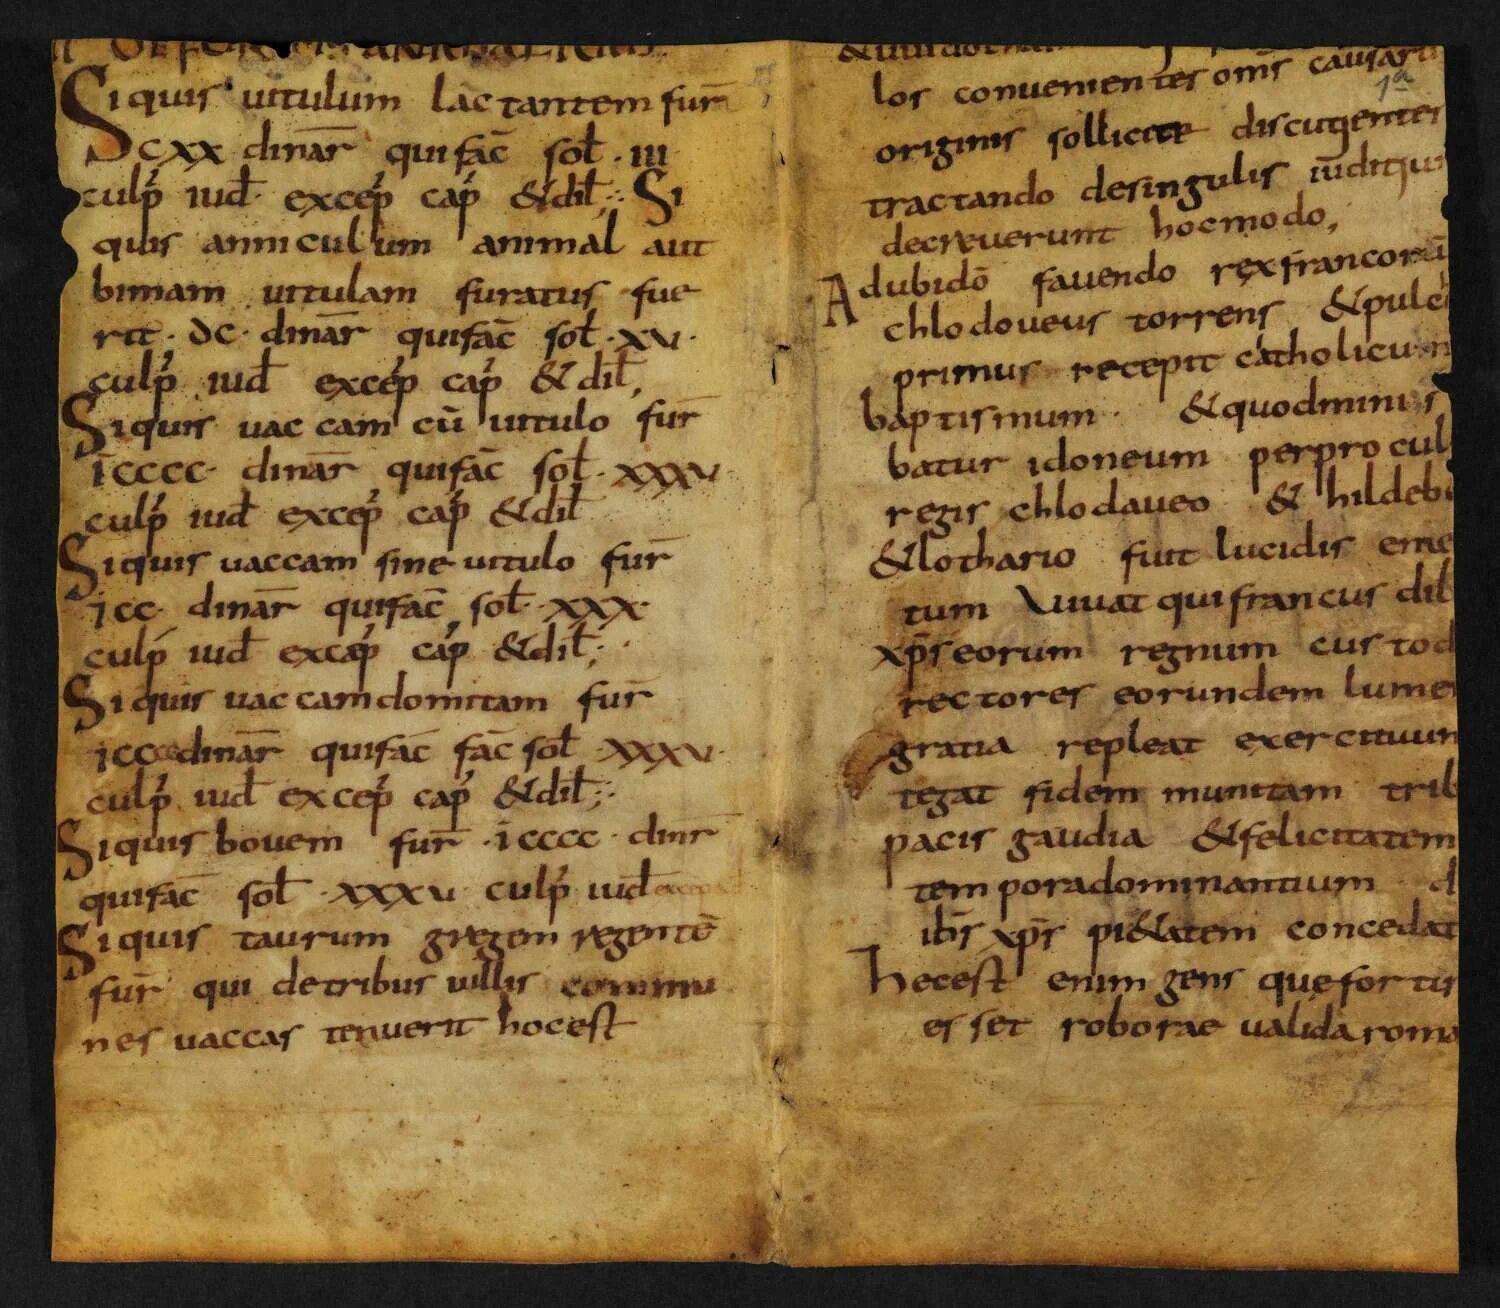 DE FURTIS ANIMALIUM
Siquis uitulum lactantem fur̄
cxx dinar̄ quifac̄ sol̄ · iii
culp̄ iud̄ excep̄ cap̄ &dil̄; Si
quis anniculum animal aut
bimam uitulam furatus fue
rit · dc · dinar̄ quifac̄ sol̄ · xv ·
culp̄ iud̄ excep̄ cap̄ & dil̄,
Siquis uaccam cū uitulo fur̄
īcccc · dinar̄ quifac̄ sol̄ · xxxv ·
culp̄ iud̄ excep̄ cap̄ &dil̄
Siquis uaccam sine uitulo fur̄
īcc · dinar̄ quifac̄ sol̄ · xxx ·
culp̄ iud̄ excep̄ cap̄ &dil̄;
Siquis uaccam domitam fur̄
dinar̄ quifac̄ fac̄ sol̄ · xxxv ·
culp̄ iud̄ excep̄ cap̄ &dil̄;
Siquis bouem fur̄ · īcccc · dinr̄
quifac̄ sol̄ · xxxv culp̄ iud̄
Siquis taurum gregem regentē
fur̄ qui detribus uillis commu
nes uaccas tenuerit hocest
los conuenientes om̄s causarū
1a
originis sollicite discutientes
tractando desingulis iuditiu
decreuerunt hocmodo,
Adubidō fauendo rexfrancorū
chlodoueus torrens &pulc
primus recepit catholicum
baptismum · &quodminus
batur idoneum perprocul
regis chlodaueo & hildeb
&lothario fuit lucidis eme
tum Viuat quifrancus dil
xp̄s eorum regnum custod
rectores eorundem lume
gratia repleat exercituum
tegat fidem munitam trib
pacis gaudia &felicitatem
tempora dominantium d
ih̄s xp̄s pi&atem concedat
hecest enim gens quefortis
esset robore ualida roma